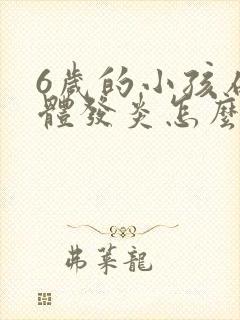 6歲的小孩
體發炎怎麼
弗萊龍